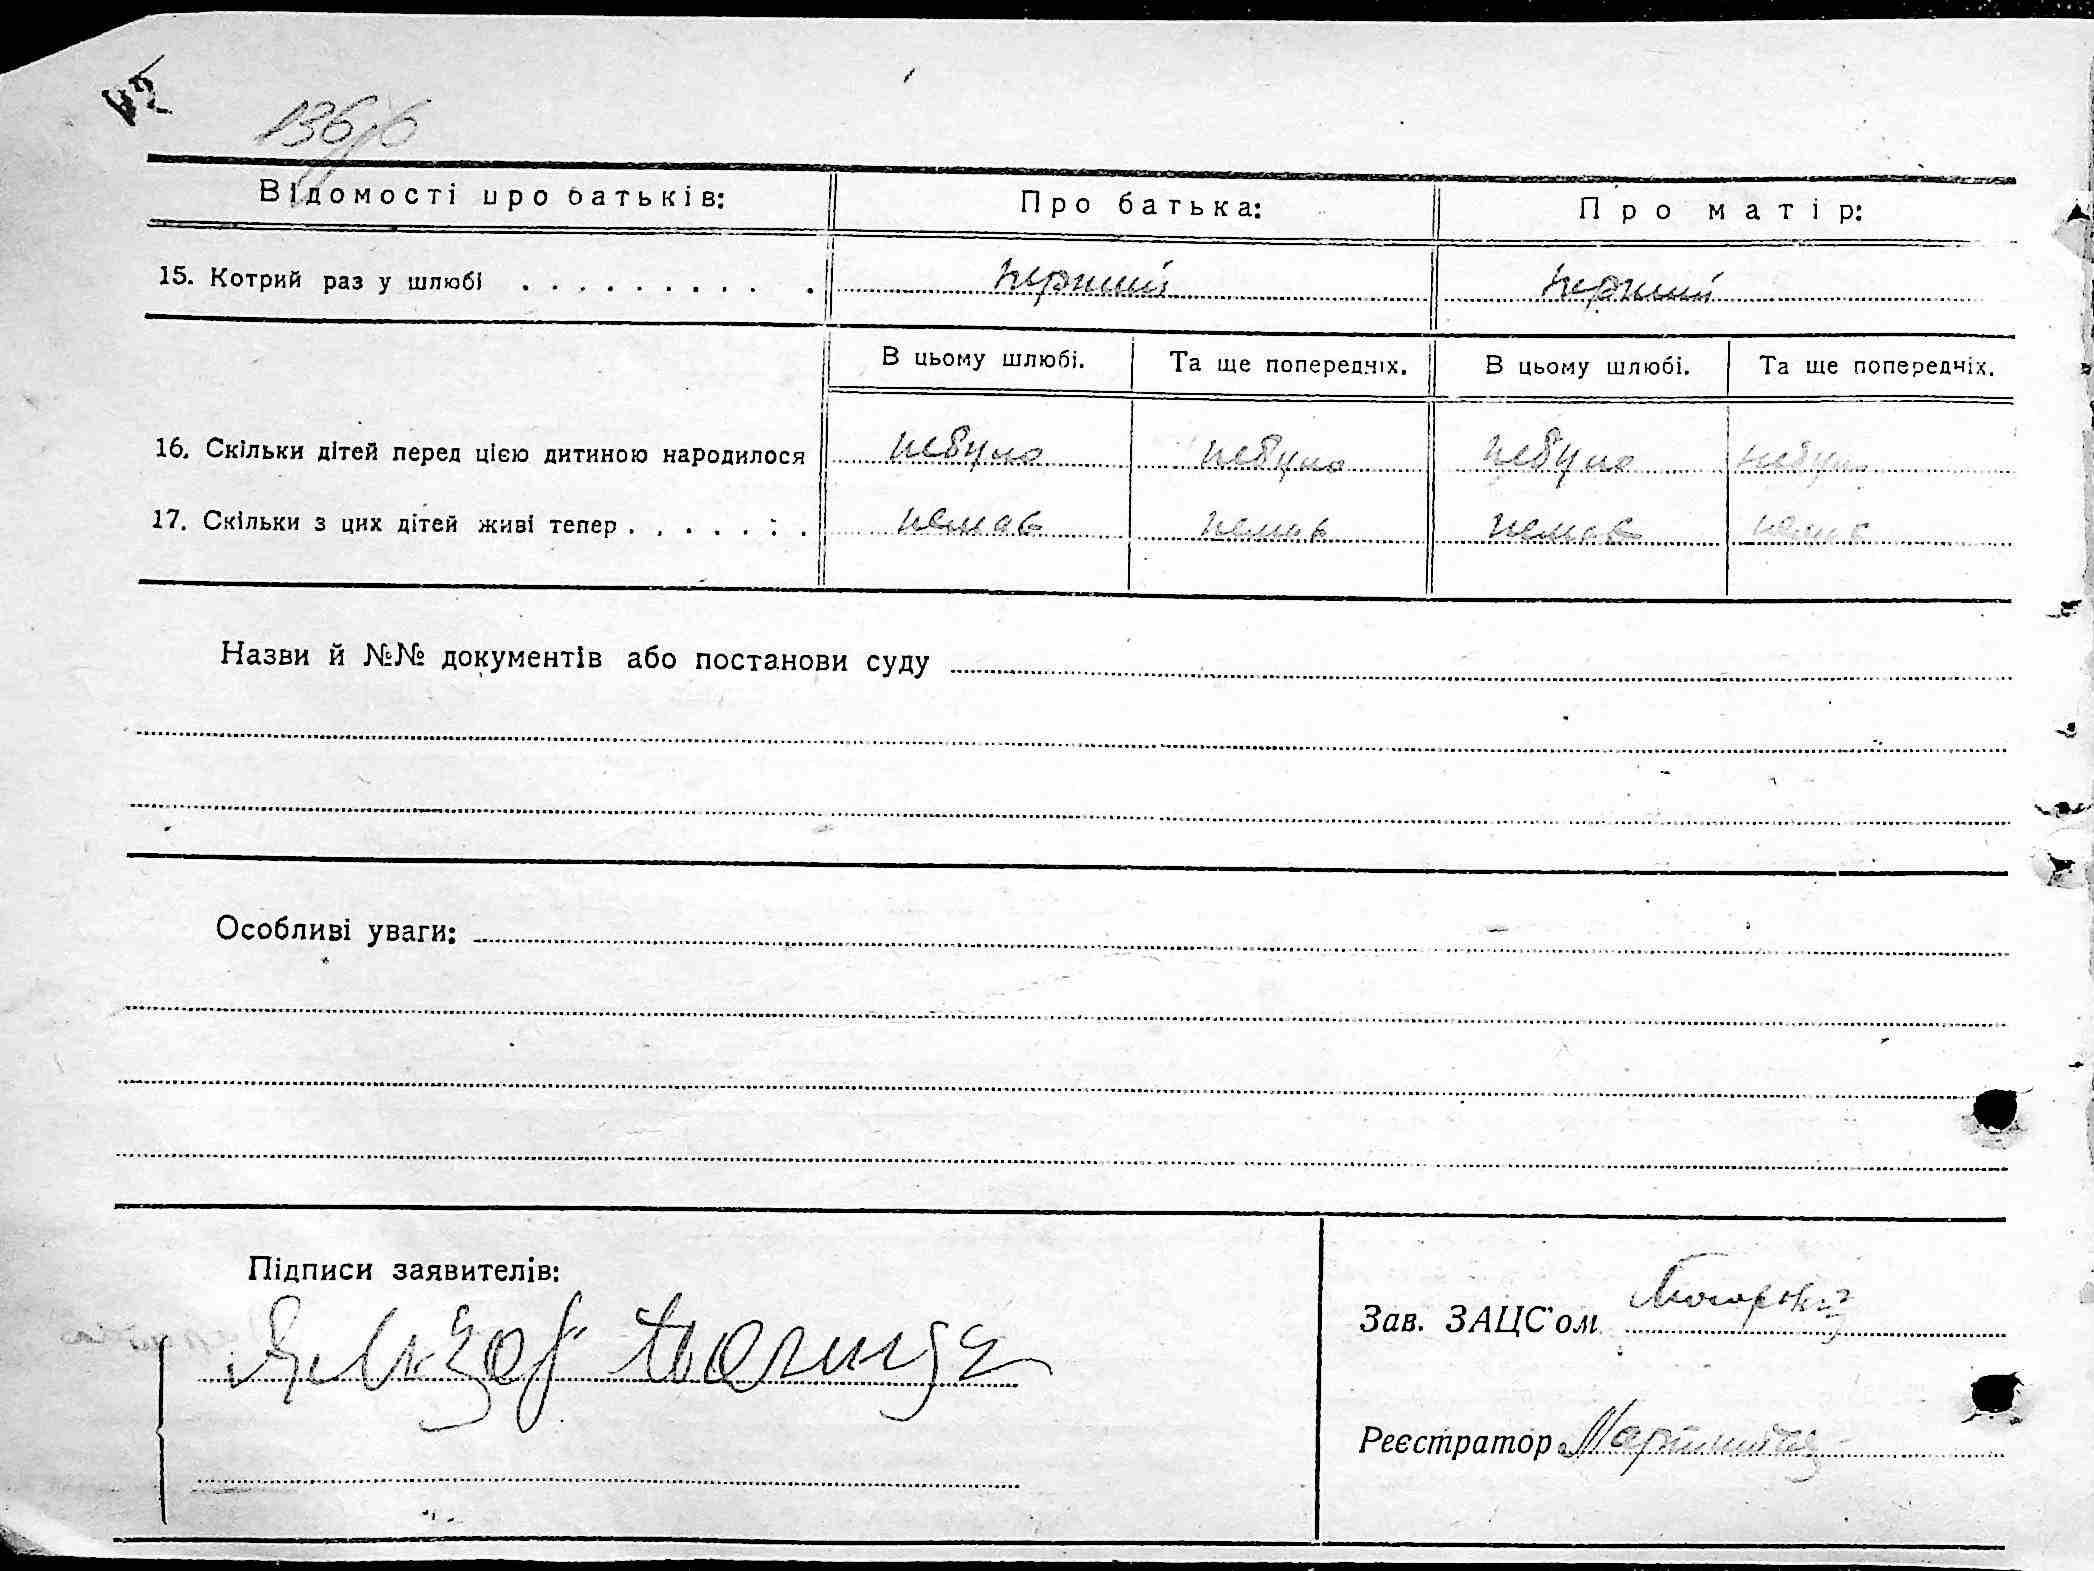 136/б
Відомості про батьків: Про батька: Про матір:
15. Котрий раз у шлюбі . . . . . . . . . . перший перший
В цьому шлюбі. Та ще попередніх. В цьому шлюбі. Та ще попередніх.
16. Скільки дітей перед цією дитиною народилося небуло небуло небуло небуло
17. Скільки з цих дітей живі тепер . . . . . . . немає немає немає немає
Назви й №№ документів або постанови суду
Особливі уваги:
Підписи заявителів:
Зав. ЗАЦС'ом
Реєстратор